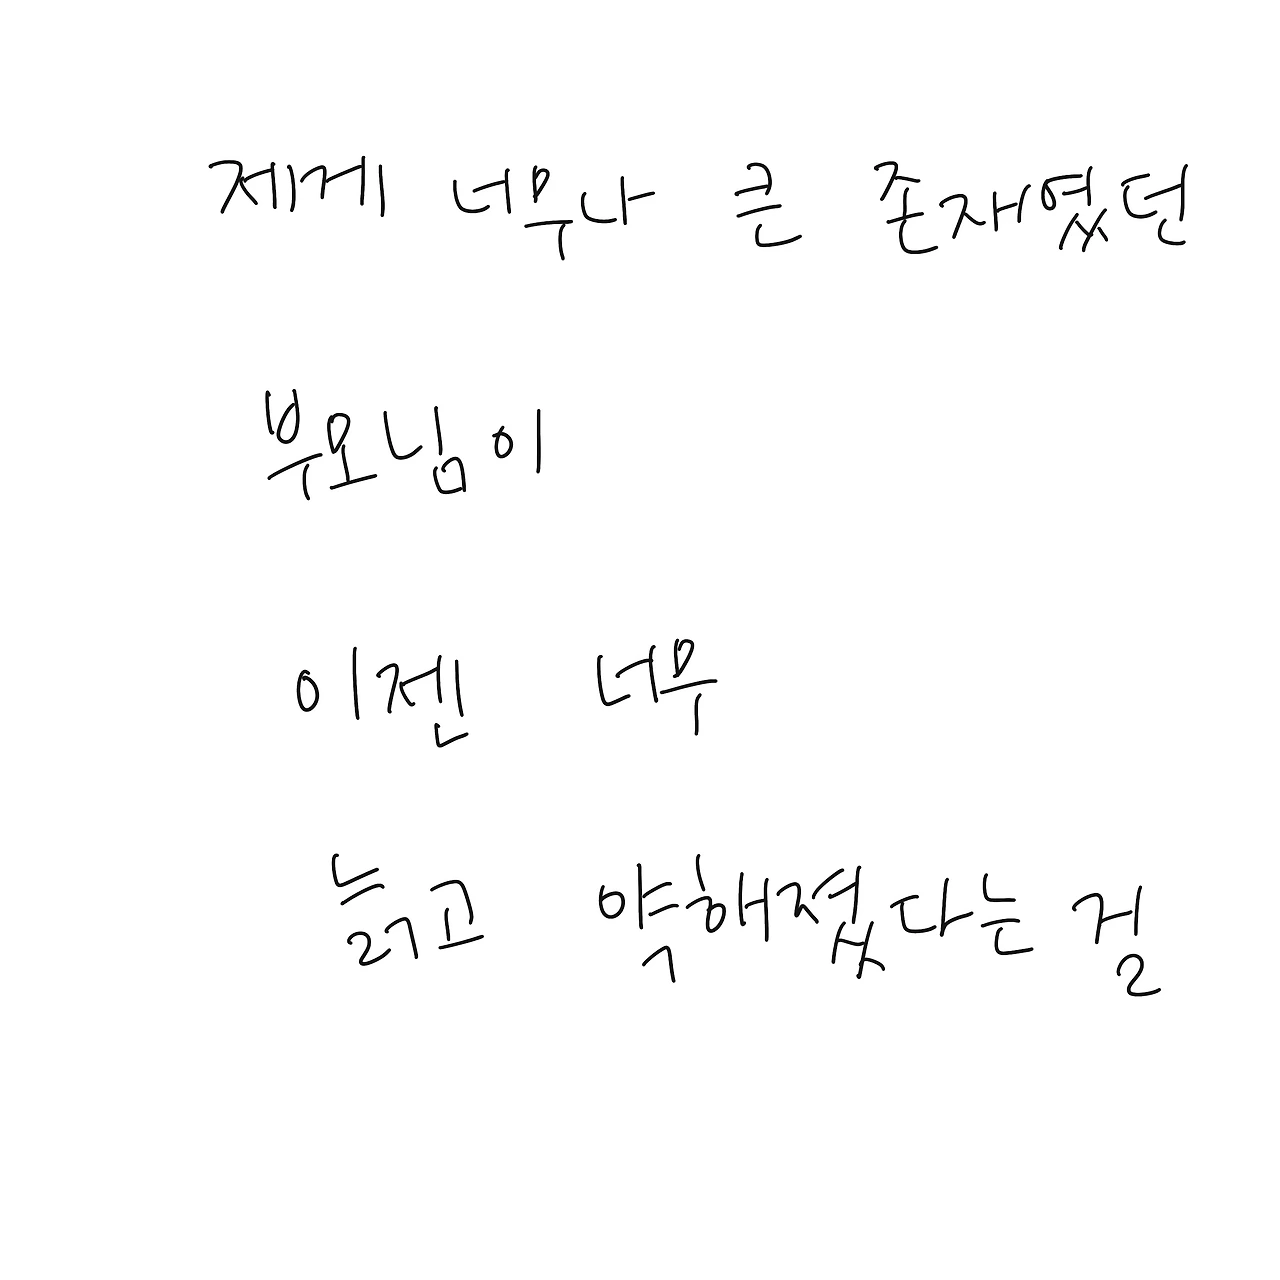 제게 너무나 큰 존재였던
부모님이
이젠 너무
늙고 약해졌다는 걸